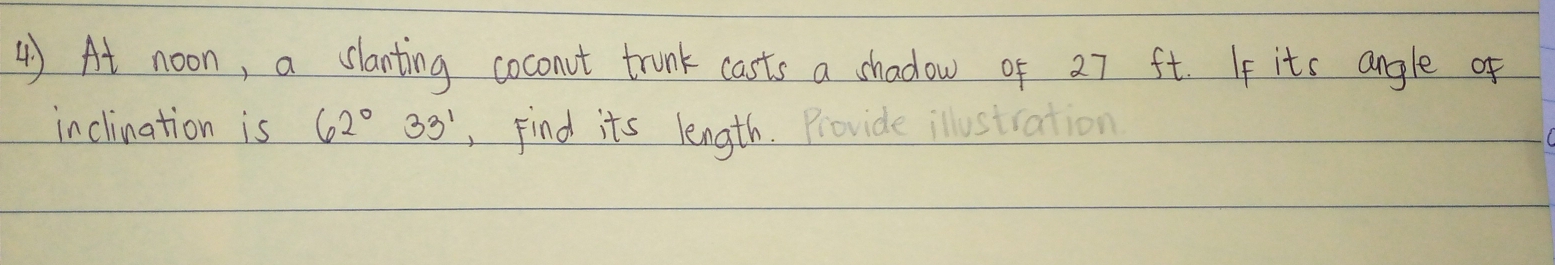 4.) At noon, a slanting coconut trunk casts a shadow of 27 ft. If its angle of
inclination is 62° 33', find its length. Provide illustration.